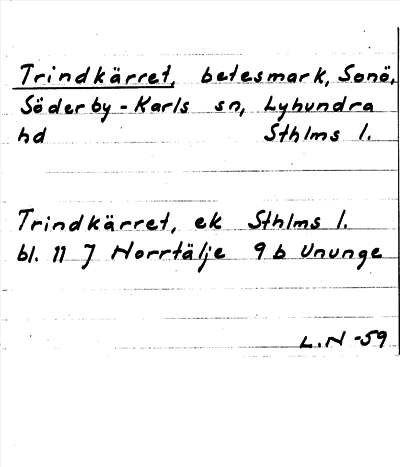 Trindkärret, betesmark, Sonö,
Söderby-Karls sn, Lyhundra
hd Sthlms l.
Trindkärret, ek Sthlms l.
bl. 11 J Norrtälje 9 b Ununge
L.N -59